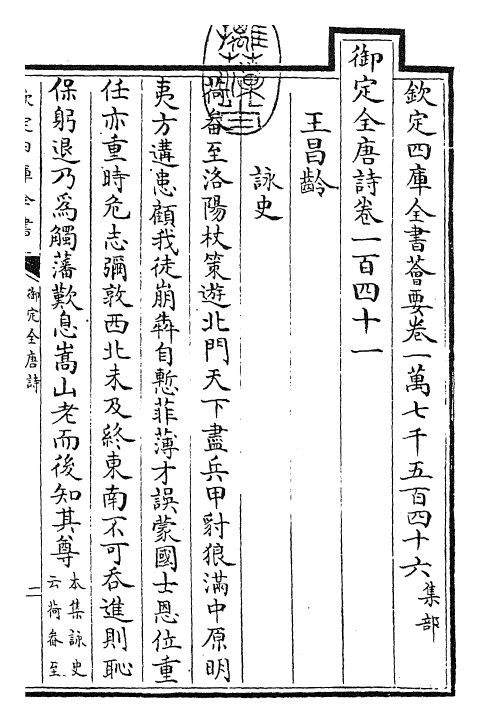 欽定四庫全書薈要卷一萬七千五百四十六 集部
御定全唐詩卷一百四十一
王昌齡
詠史
荷畚至洛陽杖策遊北門天下盡兵甲豺狼滿中原明
夷方遘患顧我徒崩犇自慙菲薄才誤蒙國士恩位重
任亦重時危志彌敦西北未及終東南不可吞進則恥
保躬退乃為觸藩歎息嵩山老而後知其尊
本集詠史
云荷畚至
欽定四庫全書
御定全唐詩